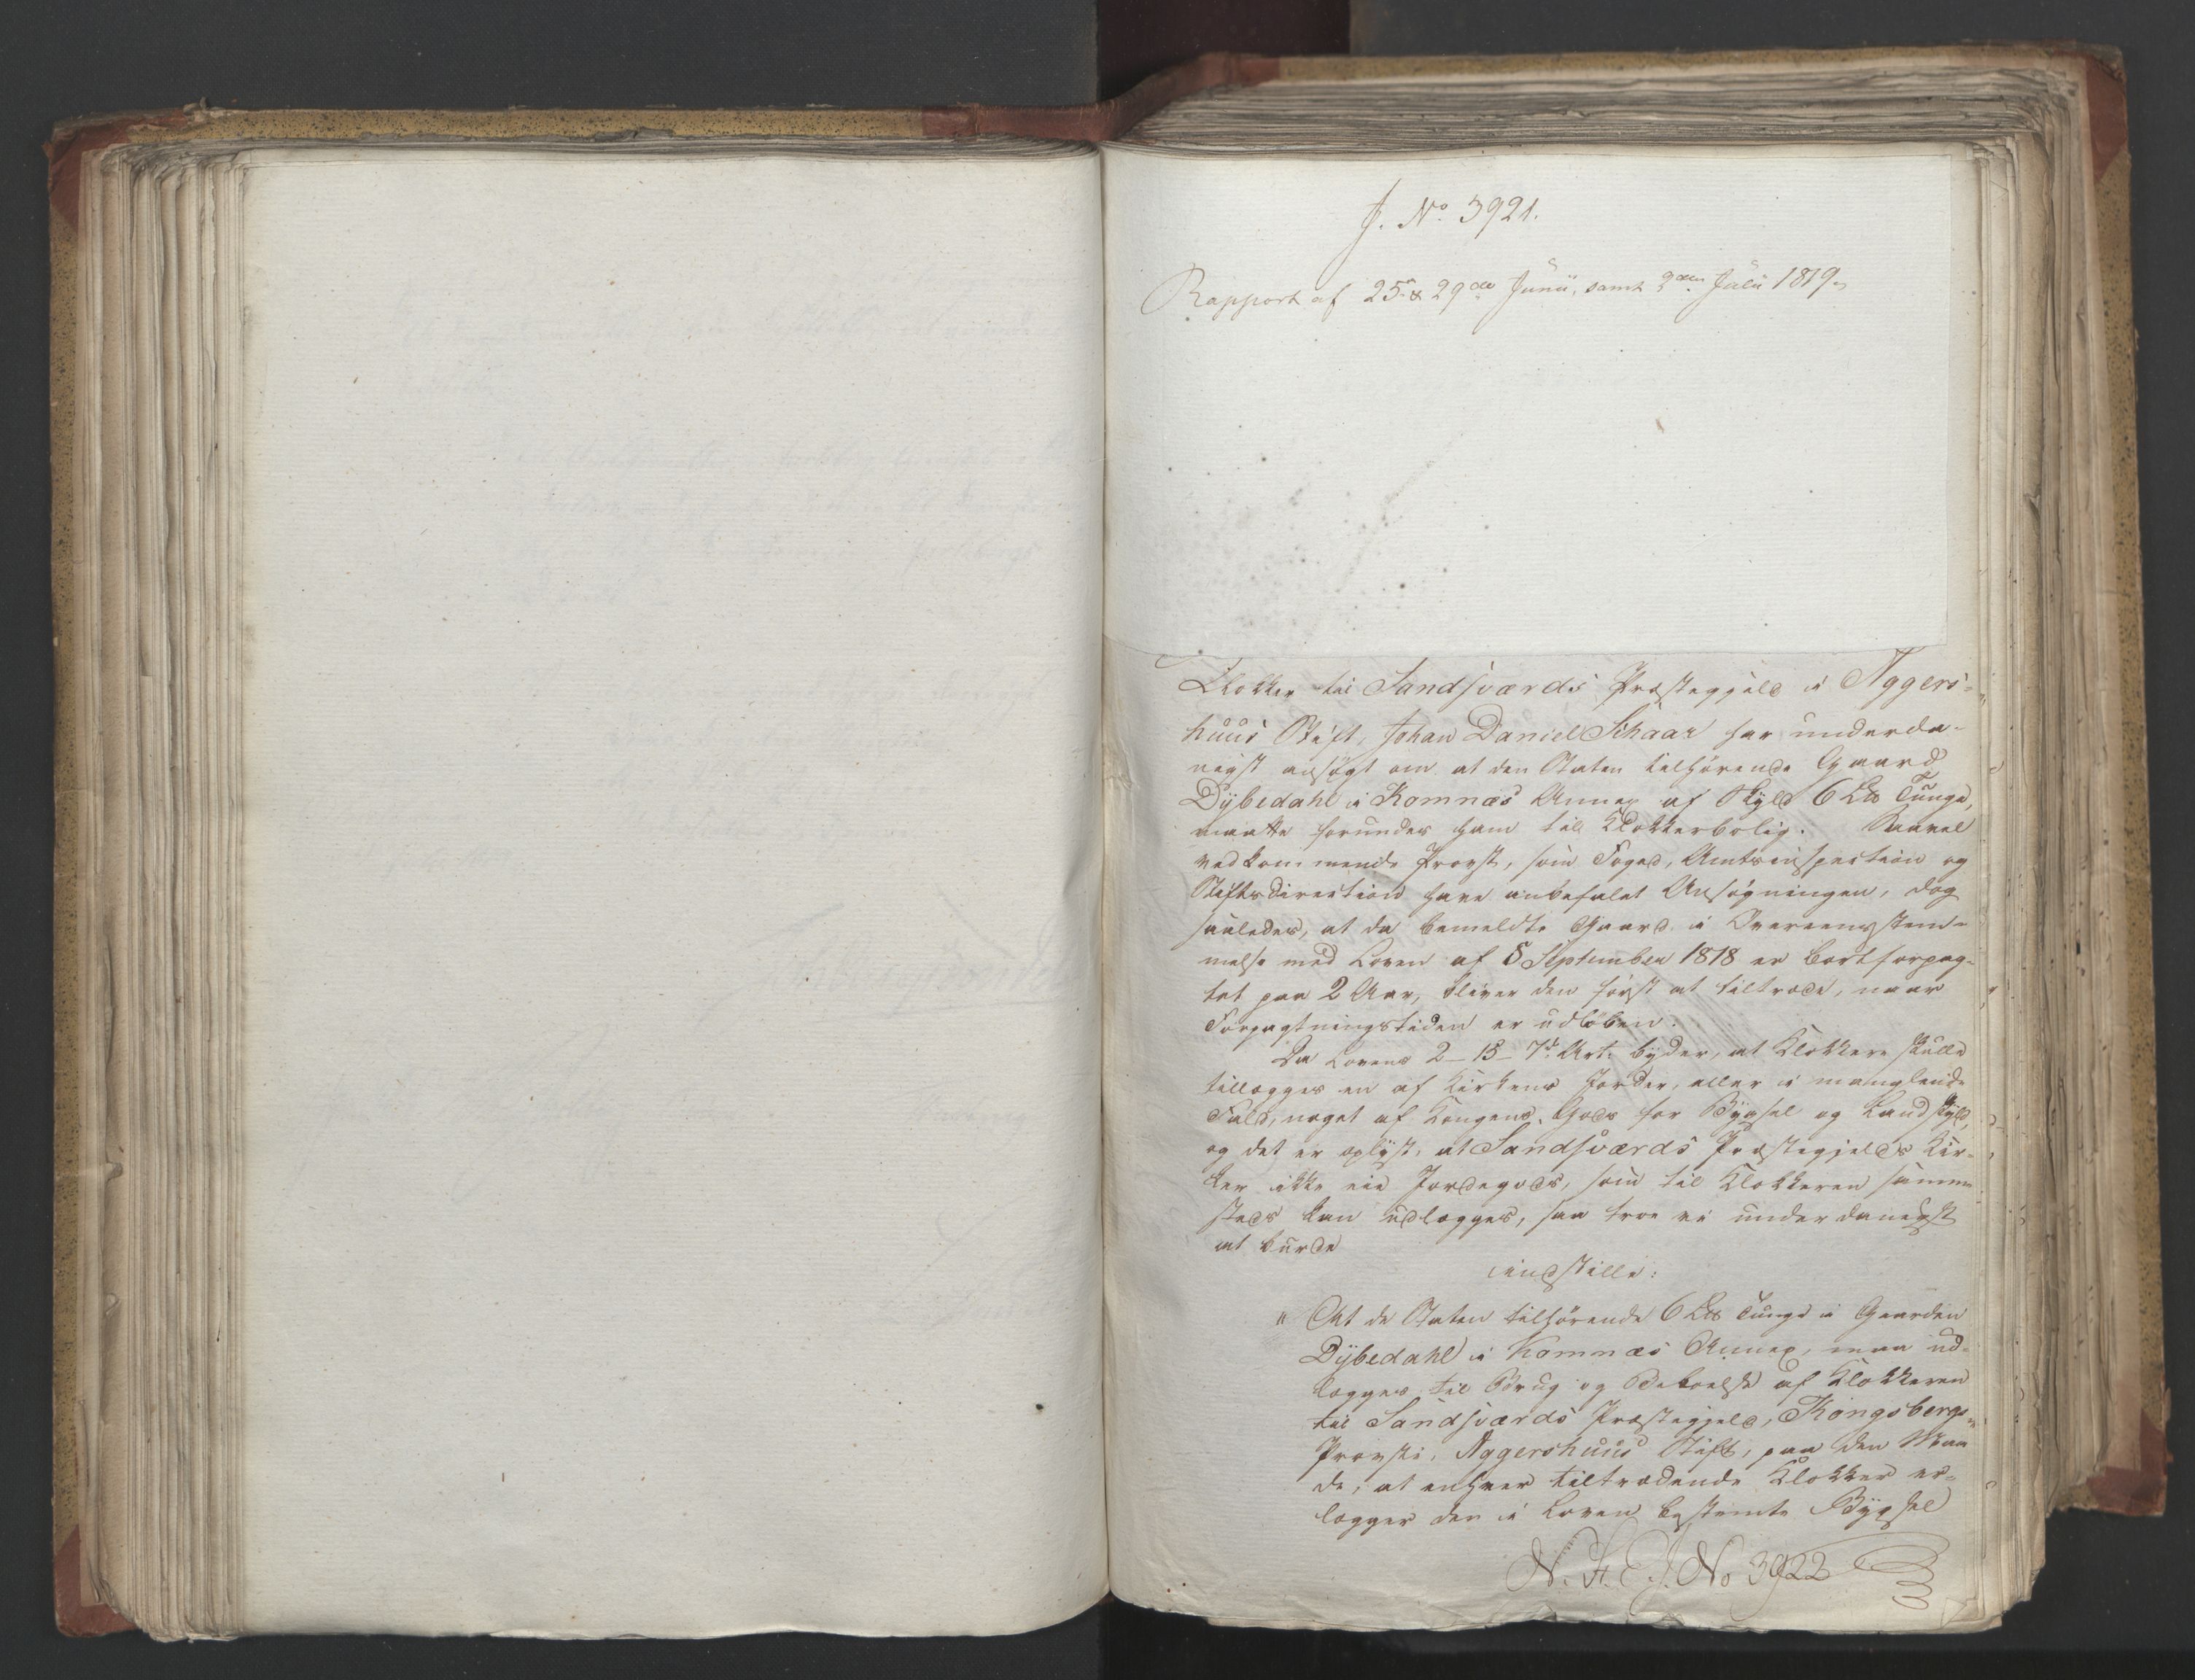 J. No. 3921.
Rapport af 25de & 29de Junii, samt 3den Julii 1819.
Klokker til Sandsværds Præstegjeld i Aggers-
huus Stift, Johan Daniel Schaar har underda-
nigst ansøgt om at den Staten tilhørende Gaard
Dybedahl i Komnæs Annex af Skyld 6 Lb Tunge,
maatte forundes ham til Klokkerbolig. Saavel
vedkommende Provst, som Foged, Amtsinspection og
Stiftsdirection have anbefalet Ansøgningen, dog
saaledes, at da bemeldte Gaard i Overeensstem-
melse med Loven af 5 September 1818 er bortforpag-
tet paa 2 Aar, bliver den først at tiltræde, naar
Forpagtningstiden er udløben.
Da Lovens 2-15-7de Art. byder, at Klokkere skulle
tillægges en af Kirkens Jorder, eller i manglende
Fald, noget af Kongens Gods for Bygsel og Landskyld,
og det er oplyst, at Sandsværds Præstegjelds Kir-
ker ikke eie Jordegods, som til Klokkeren samme-
steds kan udlægges, saa troe vi underdanigst
at burde
indstille:
" At de Staten tilhørende 6 Lb Tunge i Gaarden
Dybedahl i Komnæs Annex, maa ud-
lægges til Brug og Beboelse af Klokkeren
til Sandsværds Præstegjeld, Kongsbergs
Provsti, Aggershuus Stift, paa den Maa-
de, at enhver tiltrædende Klokker er-
lægger den i Loven bestemte Bygsel
J. No 3922